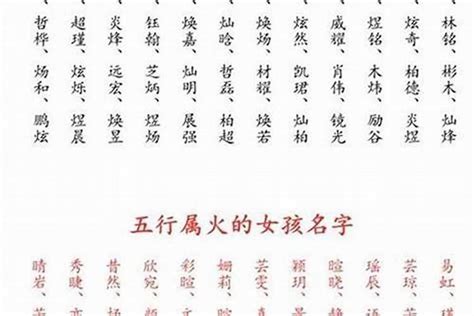 、林铭、彬木、灿烽
、炫奇、柏德、炎煜
、煜铭、木炜、励谷
、威耀、肖伟、镜光
、炫然、凯珺、灿怡
、焕炀、材耀、焕若
、灿晗、哲磊、柏超
、焕嘉、灿明、展强
、钰翰、芝炳、煜炀
、炎烽、远宏、焕昱
、超瑾、炫烁、煜晨
、哲桦、炀和、鹏炫
五行属火的女孩名字
易虹、
芸琼、
瑶辰、
暄晓、
颖玥、
芸雯、
姗莉、
彩暄、
欣宛、
昔然、
秀睫、
晴岩、